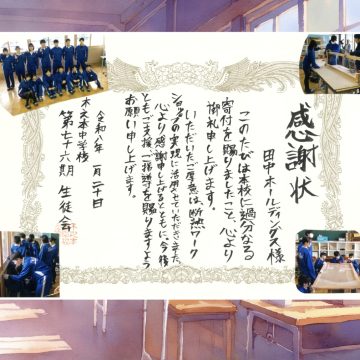 感謝状
田中ホールディングス様
このたびは本校に過分なる
寄付を賜りましたこと、心より
御礼申し上げます。
いただいたご厚意は、断熱ワーク
ショップの実現に活用させていただきました。
心より感謝申し上げるとともに、今後
ともご支援、ご指導を賜りますよう
お願い申し上げます。
令和八年 一月二十日
木之本中学校
第七十六期 生徒会